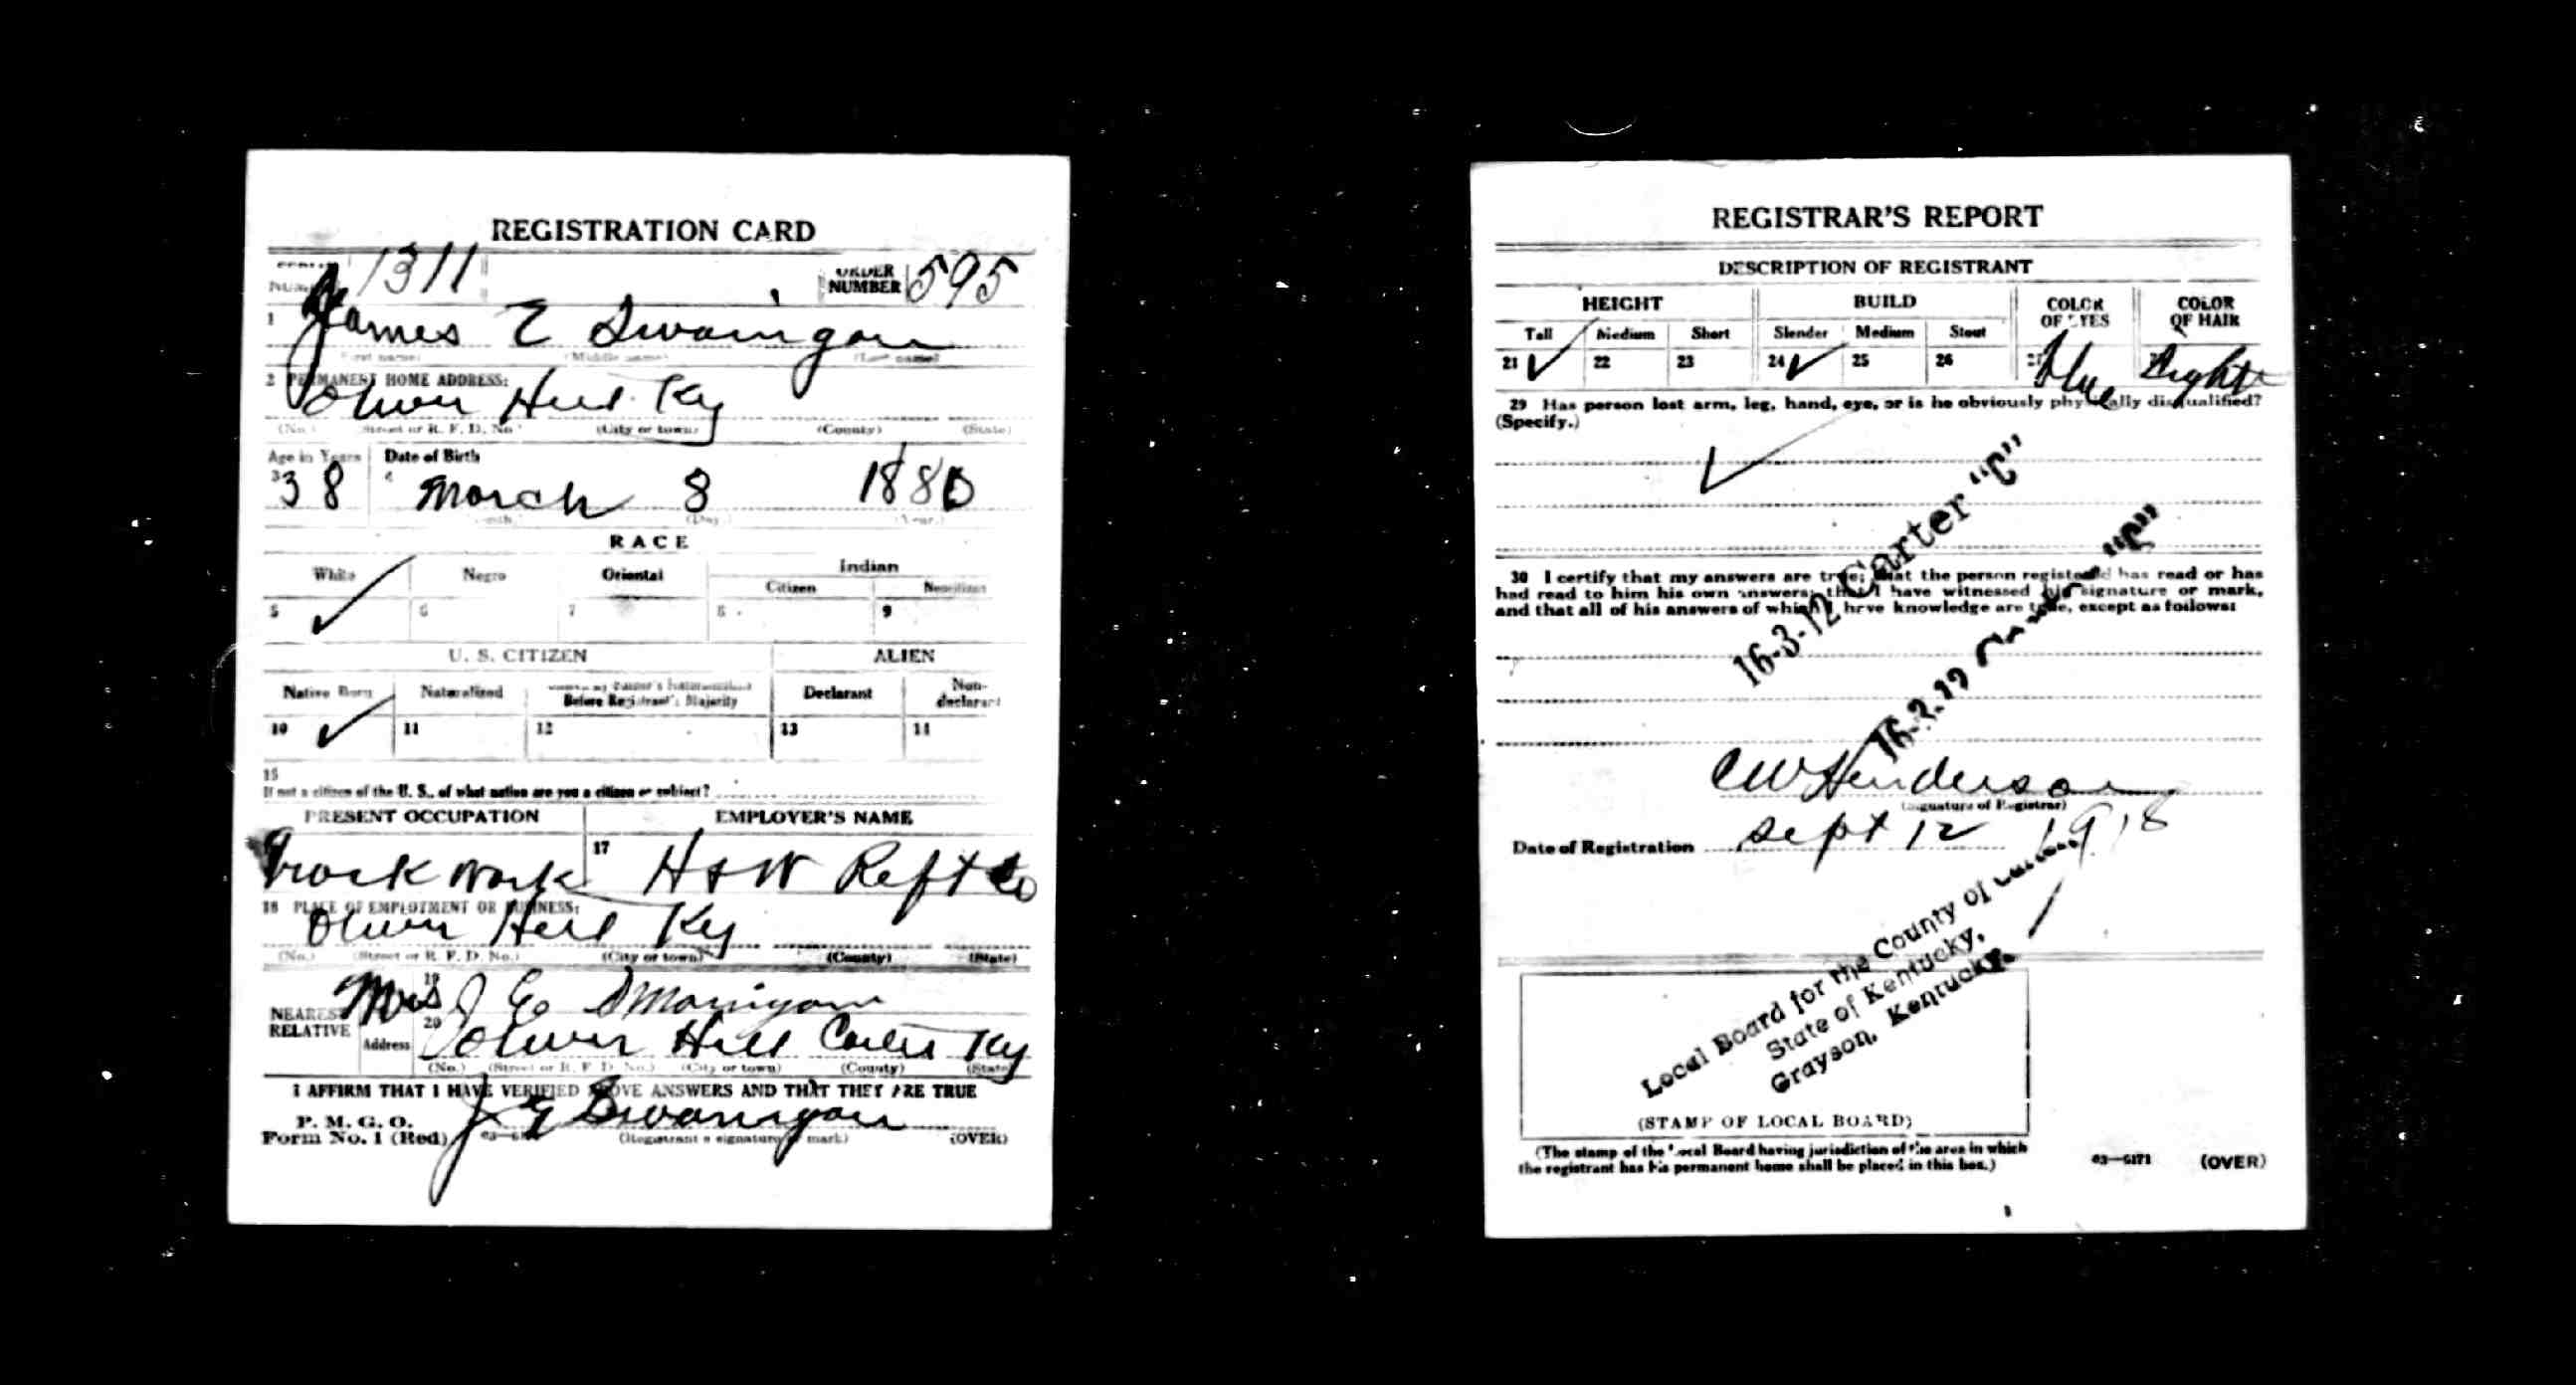 REGISTRATION CARD
SERIAL NUMBER 1311 ORDER NUMBER 595
1 James E Swanigan
(First name) (Middle name) (Last name)
2 PERMANENT HOME ADDRESS:
Oliver Hill Ky
(No.) (Street or R. F. D. No.) (City or town) (County) (State)
Age in Years Date of Birth
3 38 4 March 8 1880
(Month.) (Day.) (Year.)
RACE
White Negro Oriental Indian
Citizen Noncitizen
5 ✓ 6 7 8 9
U. S. CITIZEN ALIEN
Native Born Naturalized Citizen by Father's Naturalization Before Registrant's Majority Declarant Non-declarant
10 ✓ 11 12 13 14
15
If not a citizen of the U. S., of what nation are you a citizen or subject?
PRESENT OCCUPATION EMPLOYER'S NAME
Track Work 17 H & W Reft Co
18 PLACE OF EMPLOYMENT OR BUSINESS:
Oliver Hill Ky
(No.) (Street or R. F. D. No.) (City or town) (County) (State)
NEAREST RELATIVE
19 Mrs J E Swanigan
20 Address Oliver Hill Carter Ky
(No.) (Street or R. F. D. No.) (City or town) (County) (State)
I AFFIRM THAT I HAVE VERIFIED ABOVE ANSWERS AND THAT THEY ARE TRUE
P. M. G. O.
Form No. 1 (Red) J E Swanigan
(Registrant's signature or mark) (OVER)
REGISTRAR'S REPORT
DESCRIPTION OF REGISTRANT
HEIGHT BUILD COLOR OF EYES COLOR OF HAIR
Tall Medium Short Slender Medium Stout
21 ✓ 22 23 24 ✓ 25 26 27 blue light
29 Has person lost arm, leg, hand, eye, or is he obviously physically disqualified?
(Specify.)
✓
16-3-12 Carter "C"
16-3-12 Carter "C"
30 I certify that my answers are true; that the person registered has read or has
had read to him his own answers; that I have witnessed his signature or mark,
and that all of his answers of which I have knowledge are true, except as follows:
C W Henderson
(Signature of Registrar)
Date of Registration Sept 12 1918
Local Board for the County of Carter,
State of Kentucky,
Grayson, Kentucky.
(STAMP OF LOCAL BOARD)
(The stamp of the Local Board having jurisdiction of the area in which
the registrant has his permanent home shall be placed in this box.)
03—6171 (OVER)